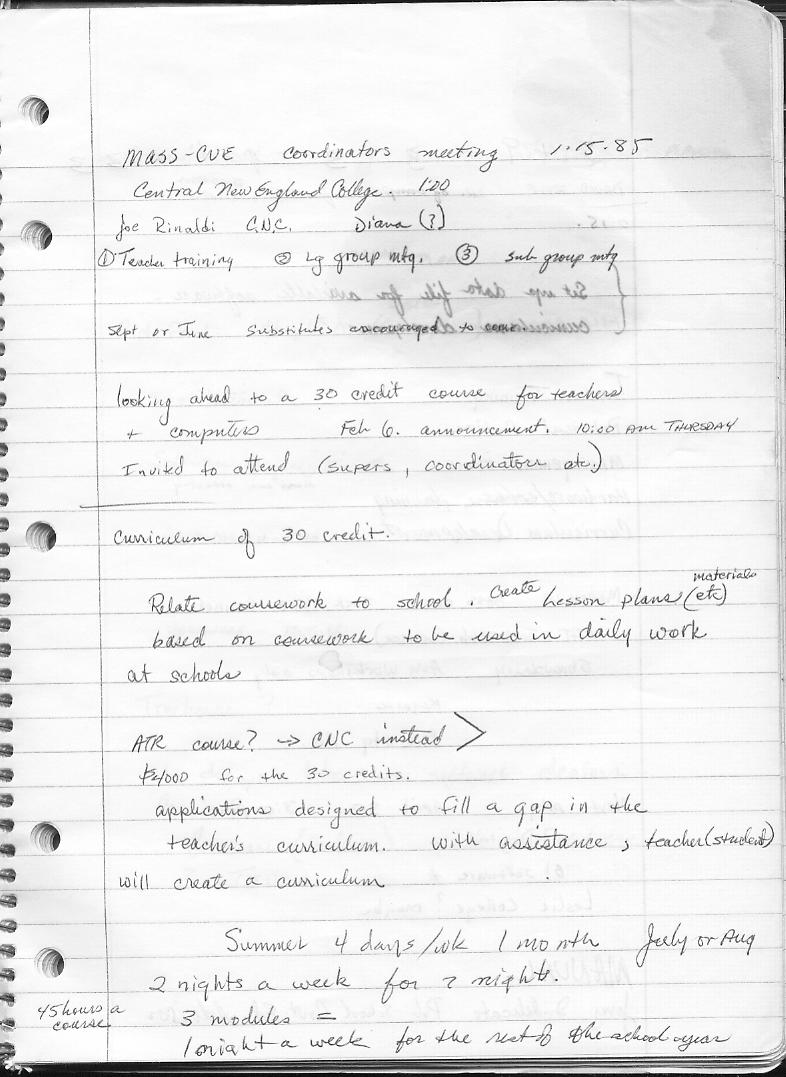 MASS-CUE coordinators meeting 1.15.85
Central New England College. 1:00
Joe Rinaldi C.N.C. Diana (?)
① Teacher training ② Lg group mtg. ③ sub group mtg
Sept or June Substitutes encouraged to come.
looking ahead to a 30 credit course for teachers
+ computers Feb 6. announcement. 10:00 AM THURSDAY
Invited to attend (supers, coordinators etc.)
Curriculum of 30 credit.
materials
Relate coursework to school. Create Lesson plans (etc)
based on coursework to be used in daily work
at schools
ATR course? → CNC instead >
for the 30 credits.
applications designed to fill a gap in the
teacher's curriculum. With assistance, teacher (student)
will create a curriculum
Summer 4 days/wk 1 month July or Aug
2 nights a week for ? nights.
45 hours a
course
3 modules =
1 night a week for the rest of the school year